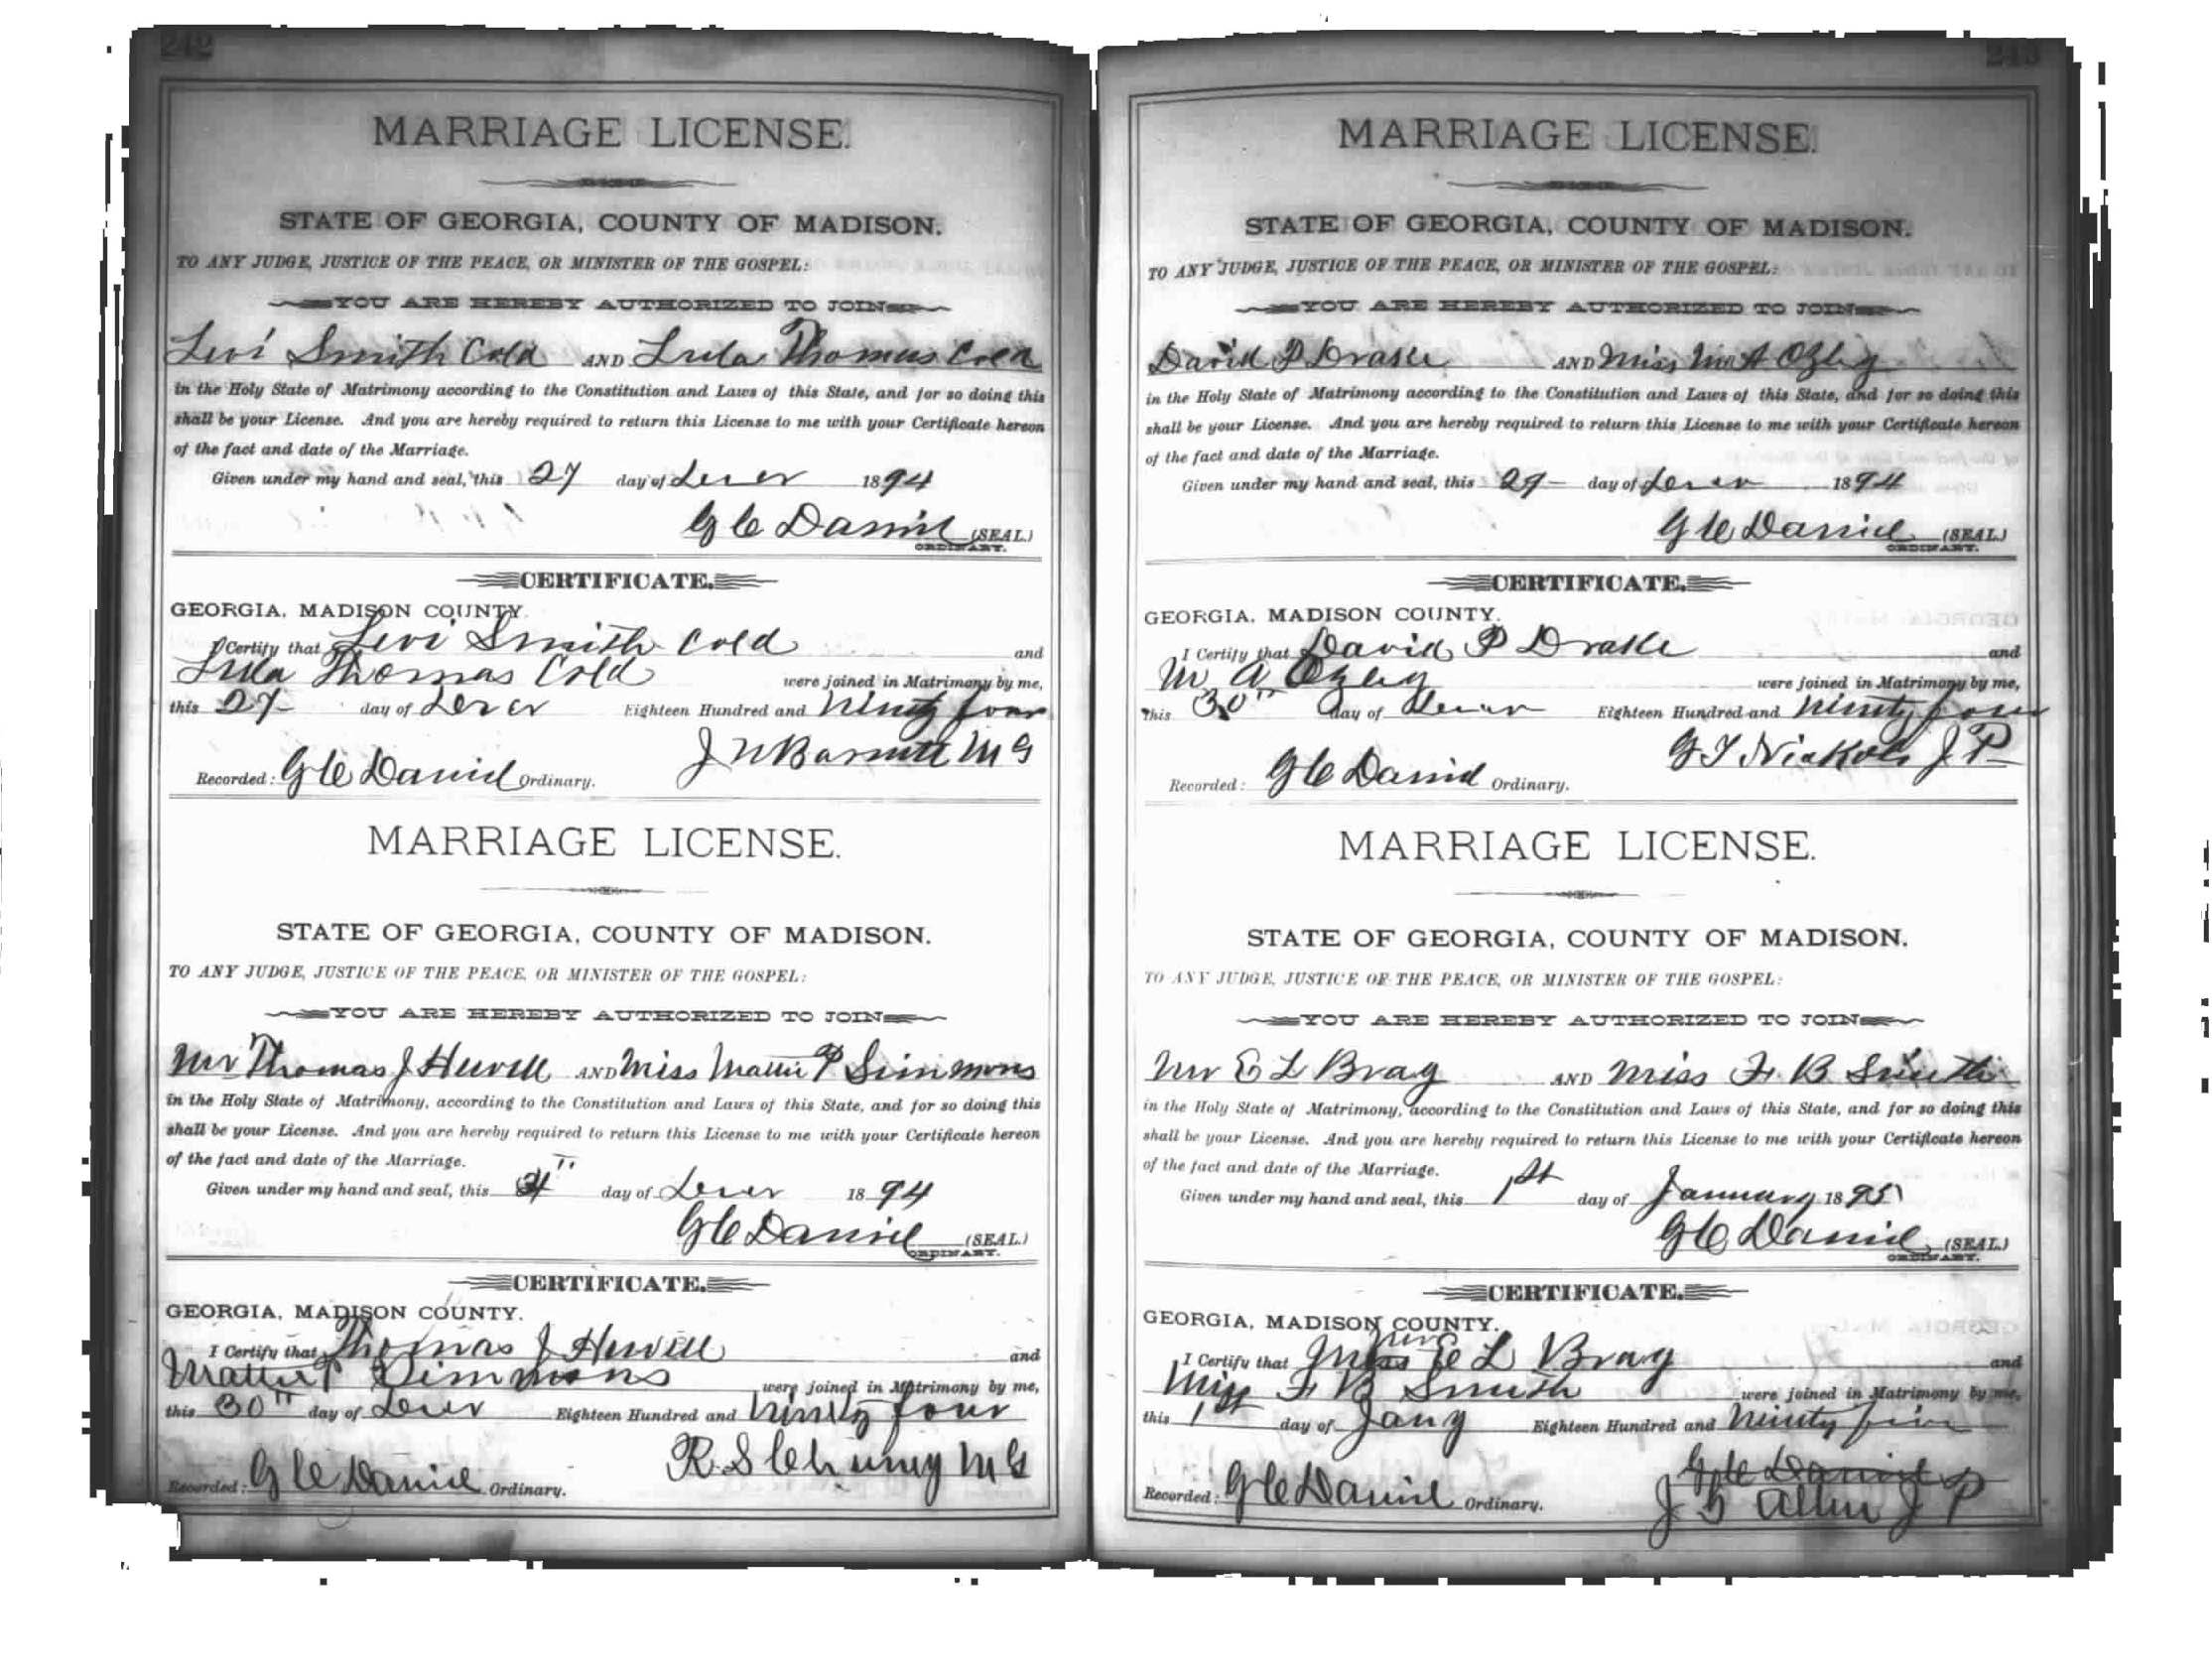 242
MARRIAGE LICENSE.
STATE OF GEORGIA, COUNTY OF MADISON.
TO ANY JUDGE, JUSTICE OF THE PEACE, OR MINISTER OF THE GOSPEL:
YOU ARE HEREBY AUTHORIZED TO JOIN
Levi Smith Cold AND Lula Thomas Cold
in the Holy State of Matrimony according to the Constitution and Laws of this State, and for so doing this
shall be your License. And you are hereby required to return this License to me with your Certificate hereon
of the fact and date of the Marriage.
Given under my hand and seal, this 27 day of Decr 1894
G C Daniel (SEAL.)
ORDINARY.
CERTIFICATE.
GEORGIA, MADISON COUNTY.
I Certify that Levi Smith Cold and
Lula Thomas Cold were joined in Matrimony by me,
this 27 day of Decr Eighteen Hundred and Ninety four
J N M G
Recorded: G C Daniel Ordinary.
MARRIAGE LICENSE.
STATE OF GEORGIA, COUNTY OF MADISON.
TO ANY JUDGE, JUSTICE OF THE PEACE, OR MINISTER OF THE GOSPEL:
YOU ARE HEREBY AUTHORIZED TO JOIN
Mr Thomas J Hewell AND Miss Mattie P Simmons
in the Holy State of Matrimony, according to the Constitution and Laws of this State, and for so doing this
shall be your License. And you are hereby required to return this License to me with your Certificate hereon
of the fact and date of the Marriage.
Given under my hand and seal, this day of Decr 1894
G C Daniel (SEAL.)
ORDINARY.
CERTIFICATE.
GEORGIA, MADISON COUNTY.
I Certify that Thomas J Hewell and
Mattie P Simmons were joined in Matrimony by me,
this 30" day of Decr Eighteen Hundred and ninety four
R S M G
Recorded: G C Daniel Ordinary.
243
MARRIAGE LICENSE.
STATE OF GEORGIA, COUNTY OF MADISON.
TO ANY JUDGE, JUSTICE OF THE PEACE, OR MINISTER OF THE GOSPEL:
YOU ARE HEREBY AUTHORIZED TO JOIN
David P Drake AND Miss M A Ozley
in the Holy State of Matrimony according to the Constitution and Laws of this State, and for so doing this
shall be your License. And you are hereby required to return this License to me with your Certificate hereon
of the fact and date of the Marriage.
Given under my hand and seal, this 29 day of Decr 1894
G C Daniel (SEAL.)
ORDINARY.
CERTIFICATE.
GEORGIA, MADISON COUNTY.
I Certify that David P Drake and
M A Ozley were joined in Matrimony by me,
this 30" day of Decr Eighteen Hundred and Ninety four
G T J P
Recorded: G C Daniel Ordinary.
MARRIAGE LICENSE.
STATE OF GEORGIA, COUNTY OF MADISON.
TO ANY JUDGE, JUSTICE OF THE PEACE, OR MINISTER OF THE GOSPEL:
YOU ARE HEREBY AUTHORIZED TO JOIN
Mr E L Brag AND Miss F B Smith
in the Holy State of Matrimony, according to the Constitution and Laws of this State, and for so doing this
shall be your License. And you are hereby required to return this License to me with your Certificate hereon
of the fact and date of the Marriage.
Given under my hand and seal, this 1st day of January 1895
G C Daniel (SEAL.)
ORDINARY.
CERTIFICATE.
GEORGIA, MADISON COUNTY.
I Certify that E L Brag and
Miss F B Smith were joined in Matrimony by me,
this 1st day of Jany Eighteen Hundred and Ninety five
G C Daniel
J G Allen J P
Recorded: G C Daniel Ordinary.